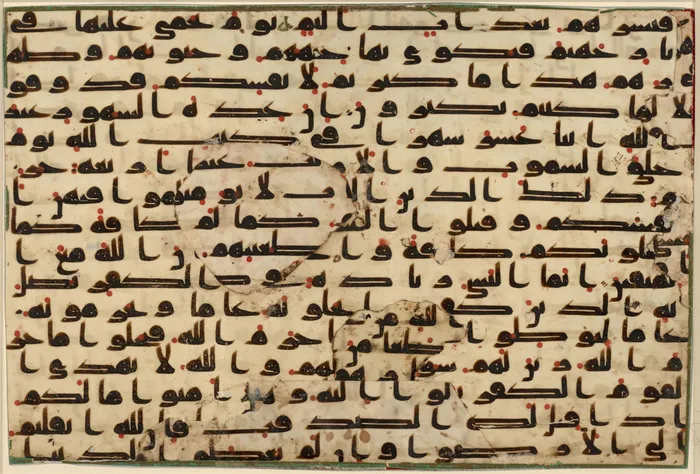 فبشرهم بعذاب اليم يوم يحمى عليها في
نار جهنم فتكوى بها جباههم وجنوبهم وظهو
رهم هذا ما كنزتم لانفسكم فذوقوا
ما كنتم تكنزون ان عدة الشهور عند
الله اثنا عشر شهرا في كتب الله يوم
خلق السموت والارض منها اربعة حر
م ذلك الدين القيم فلا تظلموا فيهن ا
نفسكم وقتلوا المشركين كافة كما
يقتلونكم كافة واعلموا ان الله مع ا
لمتقين انما النسي زيادة في الكفر يضل
به الذين كفروا يحلونه عاما ويحرمونه
عاما ليواطوا عدة ما حرم الله فيحلوا ما حر
م الله زين لهم سو اعملهم والله لا يهدي ا
لقوم الكفرين يايها الذين امنوا ما لكم
اذا قيل لكم انفروا في سبيل الله اثاقلتم
الى الارض